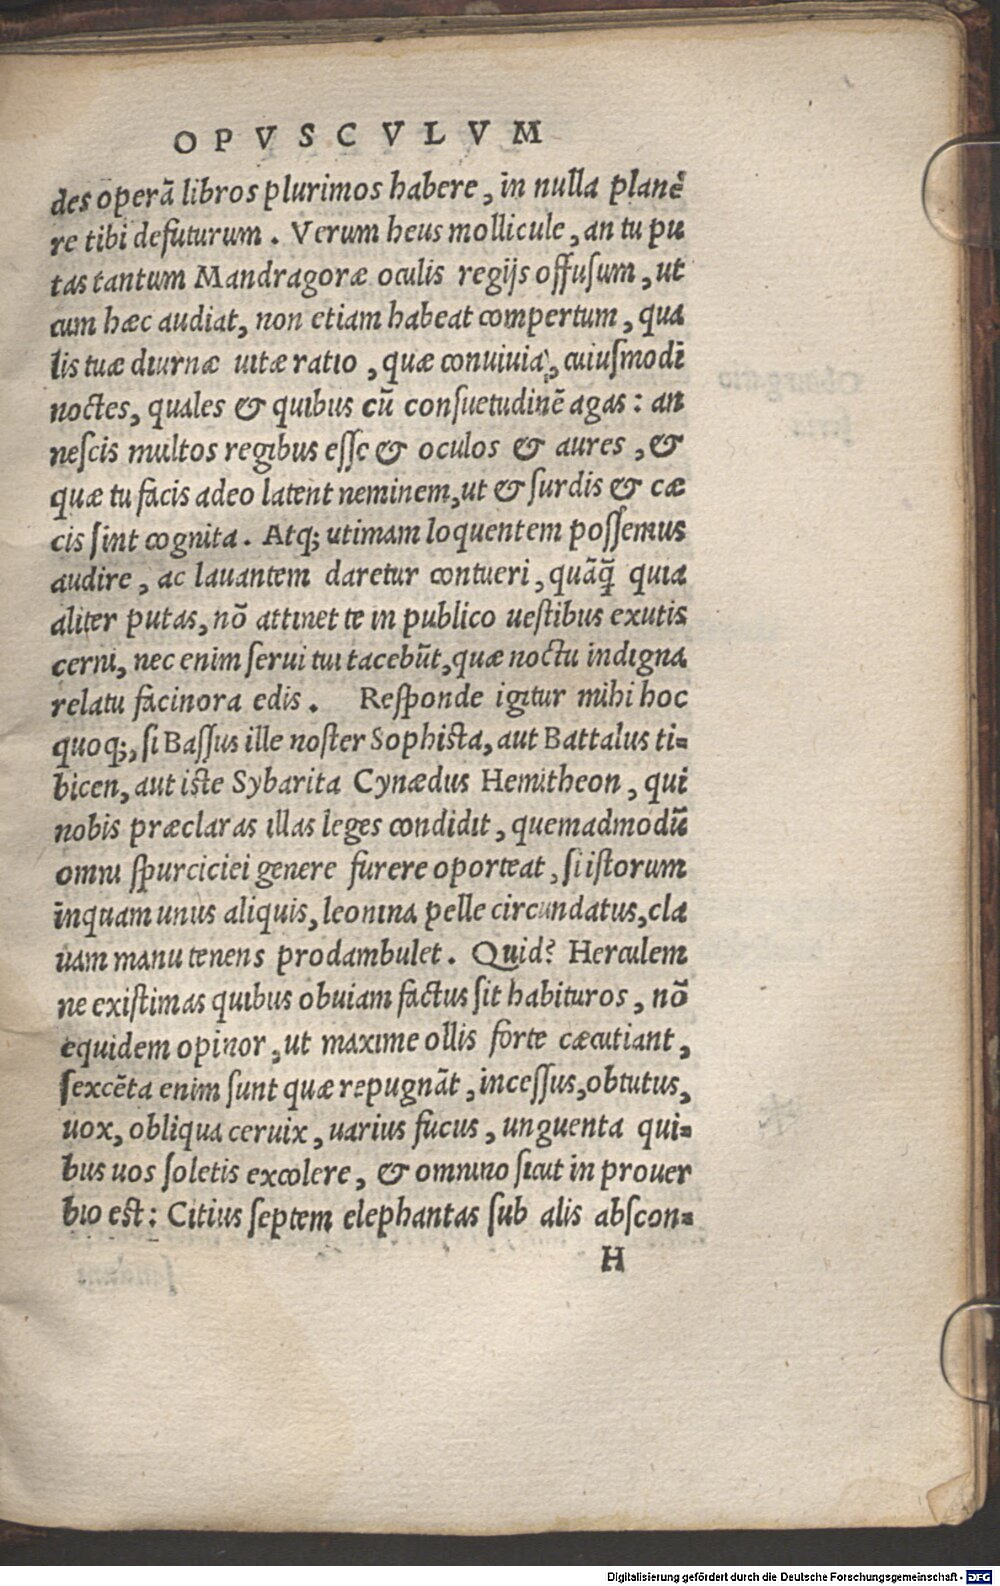 OPVSCVLVM
des operā libros plurimos habere, in nulla planè
re tibi defuturum. Verum heus mollicule, an tu pu
tas tantum Mandragoræ oculis regijs offusum, ut
cum hæc audiat, non etiam habeat compertum, qua
lis tuæ diurnæ uitæ ratio, quæ conuiuia, cuiusmodi
noctes, quales & quibus cū consuetudinē agas: an
nescis multos regibus esse & oculos & aures, &
quæ tu facis adeo latent neminem, ut & surdis & cæ
cis sint cognita. Atq; utimam loquentem possemus
audire, ac lauantem daretur contueri, quāq̄ quia
aliter putas, nō attinet te in publico uestibus exutis
cerni, nec enim serui tui tacebūt, quæ noctu indigna
relatu facinora edis. Responde igitur mihi hoc
quoq;, si Bassus ille noster Sophista, aut Battalus ti-
bicen, aut iste Sybarita Cynædus Hemitheon, qui
nobis præclaras illas leges condidit, quemadmodū
omni spurciciei genere furere oporteat, si istorum
inquam unus aliquis, leonina pelle circundatus, cla
uam manu tenens prodambulet. Quid? Herculem
ne existimas quibus obuiam factus sit habituros, nō
equidem opinor, ut maxime ollis forte cæcutiant,
sexcēta enim sunt quæ repugnāt, incessus, obtutus,
uox, obliqua ceruix, uarius fucus, unguenta qui-
bus uos soletis excolere, & omnino sicut in prouer
bio est: Citius septem elephantas sub alis abscon-
H
Digitalisierung gefördert durch die Deutsche Forschungsgemeinschaft - DFG